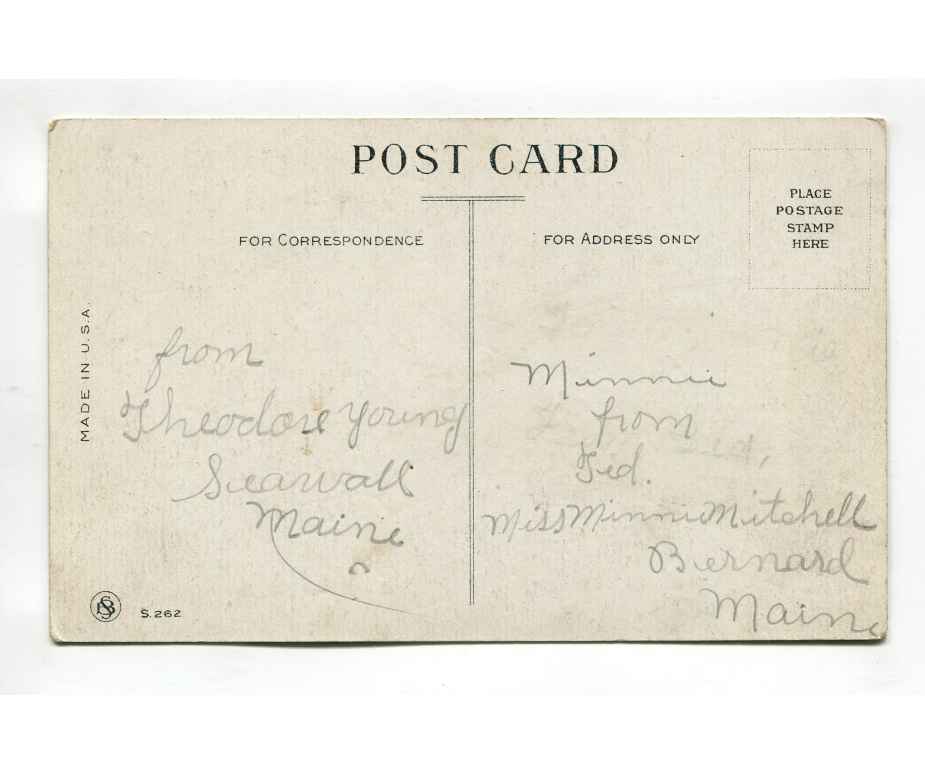 POST CARD
FOR CORRESPONDENCE
FOR ADDRESS ONLY
PLACE
POSTAGE
STAMP
HERE
MADE IN U.S.A.
from
Theodore Young
Seawall
Maine
Minnie
from
Ted.
Miss Minnie Mitchell
Bernard
Maine
S. 262